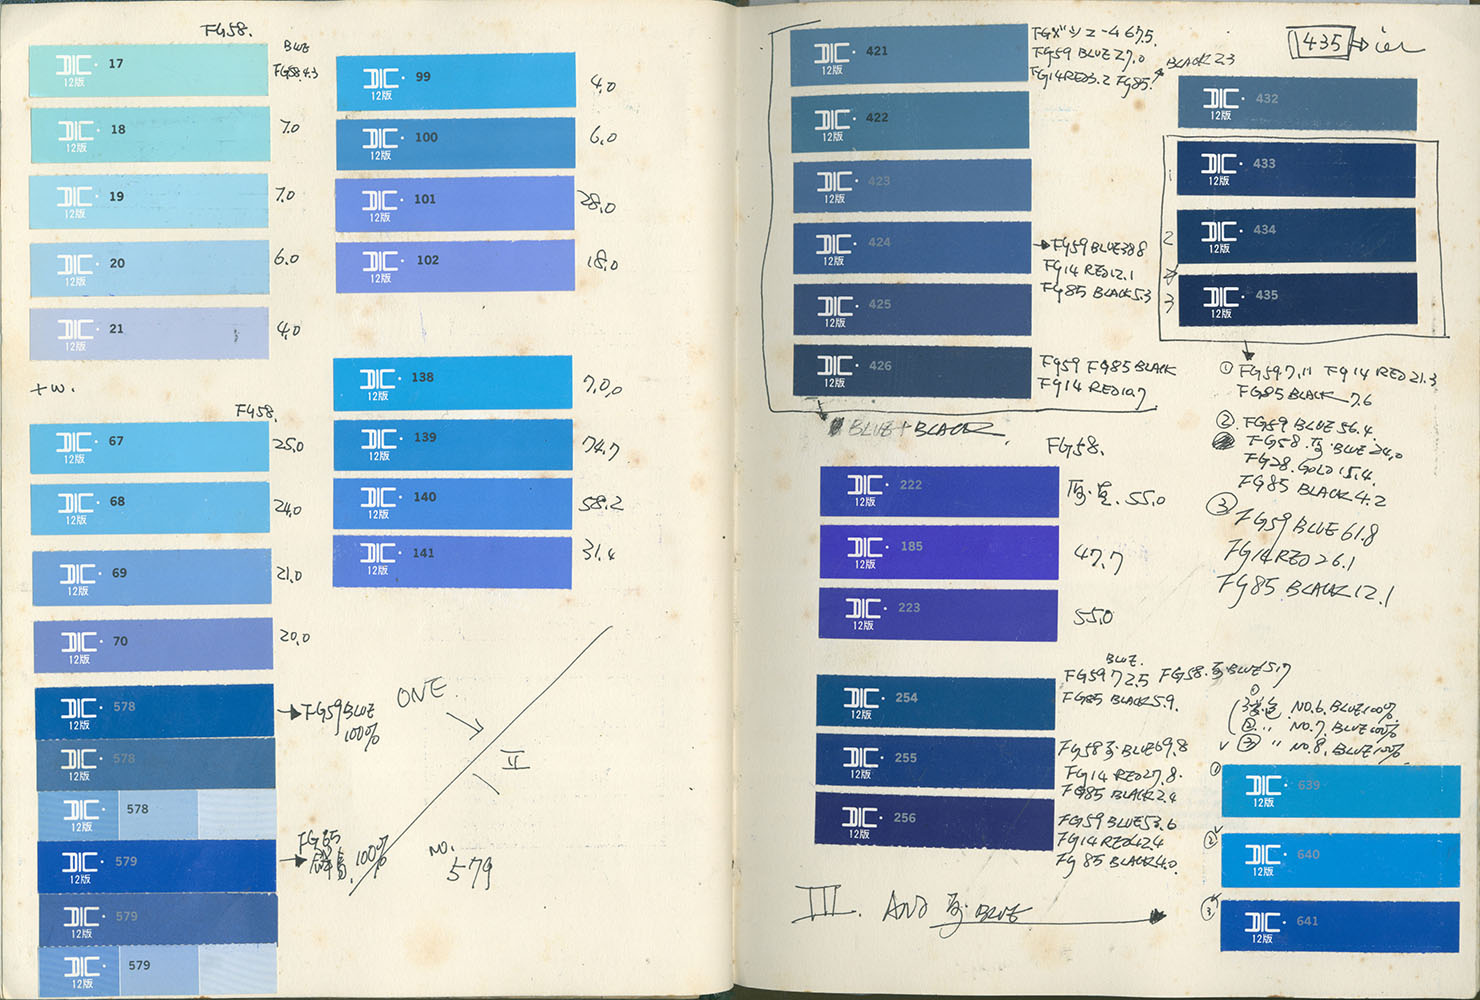 FG58.
BLUE
FG58.4.3
DIC 17
12版
DIC 18
12版
7.0
DIC 19
12版
7.0
DIC 20
12版
6.0
DIC 21
12版
4.0
+W.
FG58
DIC 67
12版
25.0
DIC 68
12版
24.0
DIC 69
12版
21.0
DIC 70
12版
20.0
DIC 578
12版
FG59 BLUE
100%
DIC 578
12版
DIC 578
12版
DIC 579
12版
100%
DIC 579
12版
DIC 579
12版
DIC 99
12版
4.0
DIC 100
12版
6.0
DIC 101
12版
28.0
DIC 102
12版
18.0
DIC 138
12版
DIC 139
12版
74.7
DIC 140
12版
58.2
DIC 141
12版
31.4
ONE
II
NO.
579
DIC 421
12版
67.5.
FG59 BLUE 27.0
FG14 RED 3.2 FG85.
BLACK 2.3
DIC 422
12版
DIC 423
12版
DIC 424
12版
FG59 BLUE 38.8
FG14 RED 12.1
FG85 BLACK 5.3
DIC 425
12版
DIC 426
12版
FG59 FG85 BLACK
FG14 RED 10.7
BLUE + BLACK
435
DIC 432
12版
1
DIC 433
12版
2
DIC 434
12版
3
DIC 435
12版
① FG59 7.11 FG14 RED 21.3
FG85 BLACK 7.6
②. FG59 BLUE 56.4.
FG58. BLUE 24.0
FG28. GOLD 15.4.
FG85 BLACK 4.2
③ FG59 BLUE 61.8
FG14 RED 26.1
FG85 BLACK 12.1
FG58.
DIC 222
12版
55.0
DIC 185
12版
47.7
DIC 223
12版
55.0
DIC 254
12版
BLUE.
FG59 72.5 FG58. BLUE 51.7
FG85 BLACK 5.9.
DIC 255
12版
FG58 BLUE 69.8
FG14 RED 27.8.
FG85 BLACK 2.4
DIC 256
12版
FG59 BLUE 53.6
FG14 RED 42.4
FG 85 BLACK 4.0.
III. AND BLUE
①
NO.6. BLUE 100%
② 〃 NO.7. BLUE 100%
③ 〃 NO.8. BLUE 100%
①
DIC 639
12版
②
DIC 640
12版
③
DIC 641
12版